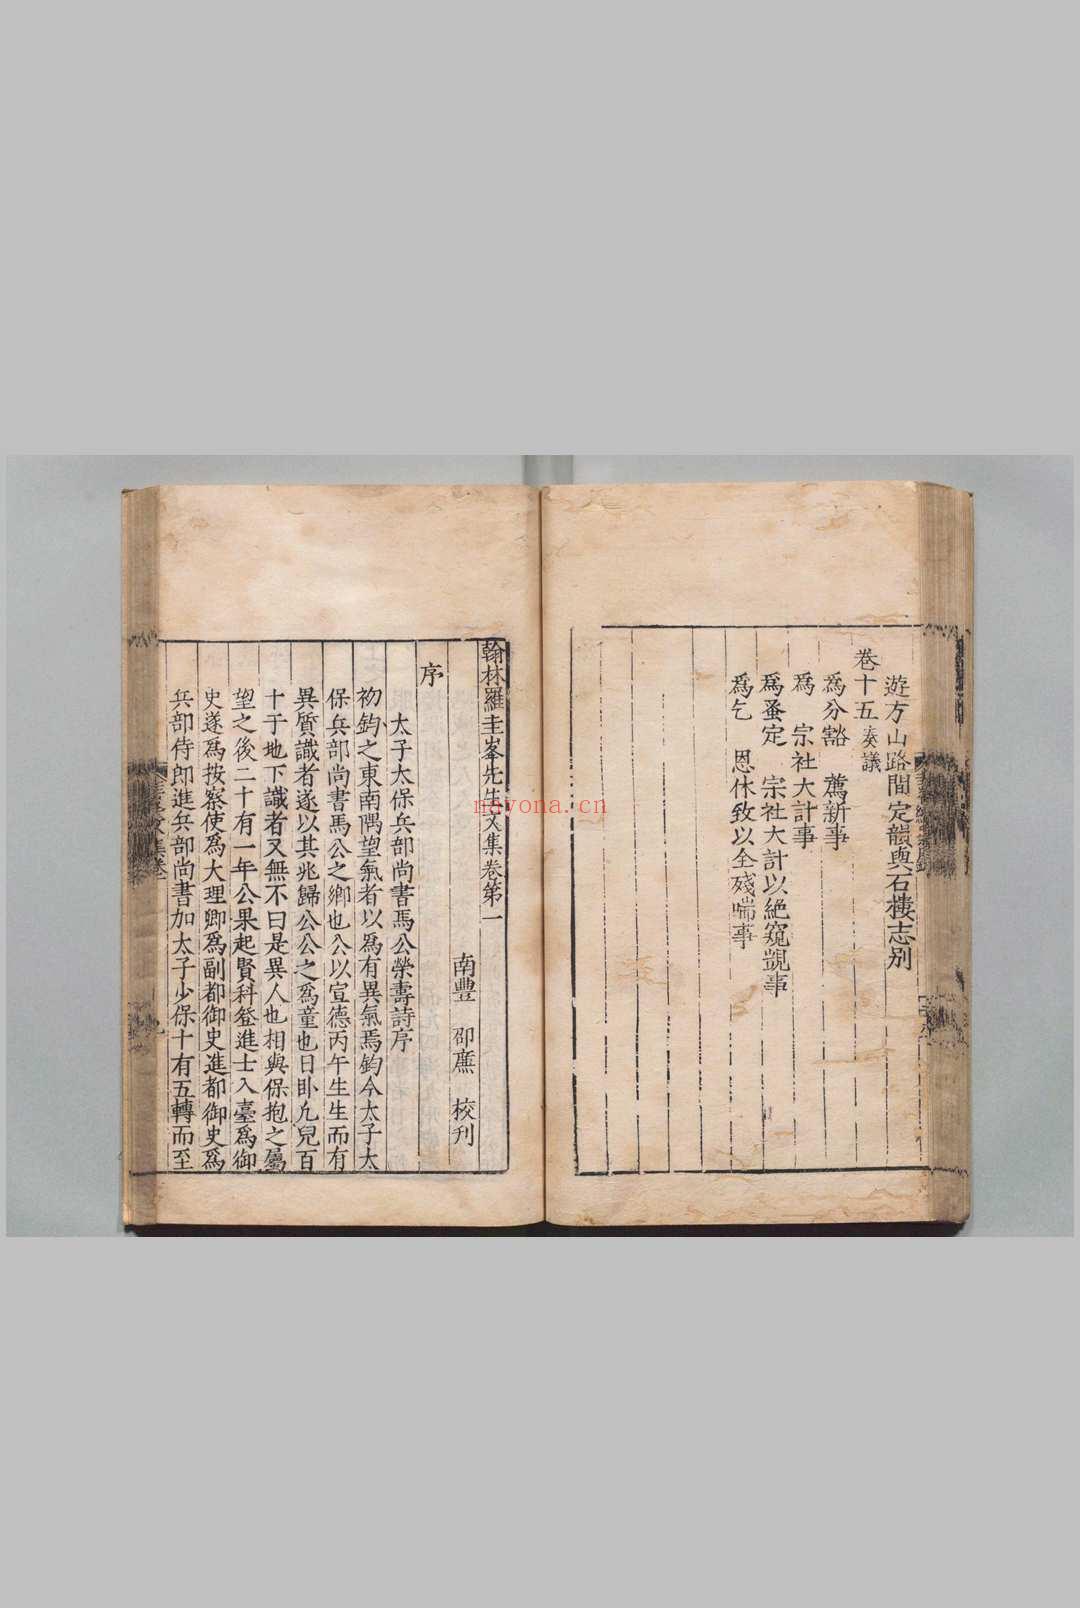 遊方山路間定韻與石樓志別
卷十五奏議
爲分豁　薦新事
爲　宗社大計事
爲蚤定　宗社大計以絶窺覬事
爲乞　恩休致以全殘喘事
翰林羅圭峯先生文集卷第一
南豐　邵廉　校刋
序
太子太保兵部尚書馬公榮壽詩序
初鈞之東南隅望氣者以爲有異氣焉鈞今太子太
保兵部尚書馬公之鄉也公以宣德丙午生生而有
異質識者遂以其兆歸公公之爲童也日卧九兒百
十于地下識者又無不曰是異人也相與保抱之屬
望之後二十有一年公果起賢科登進士入臺爲御
史遂爲按察使爲大理卿爲副都御史進都御史爲
兵部侍郎進兵部尚書加太子少保十有五轉而至
nayona.cn